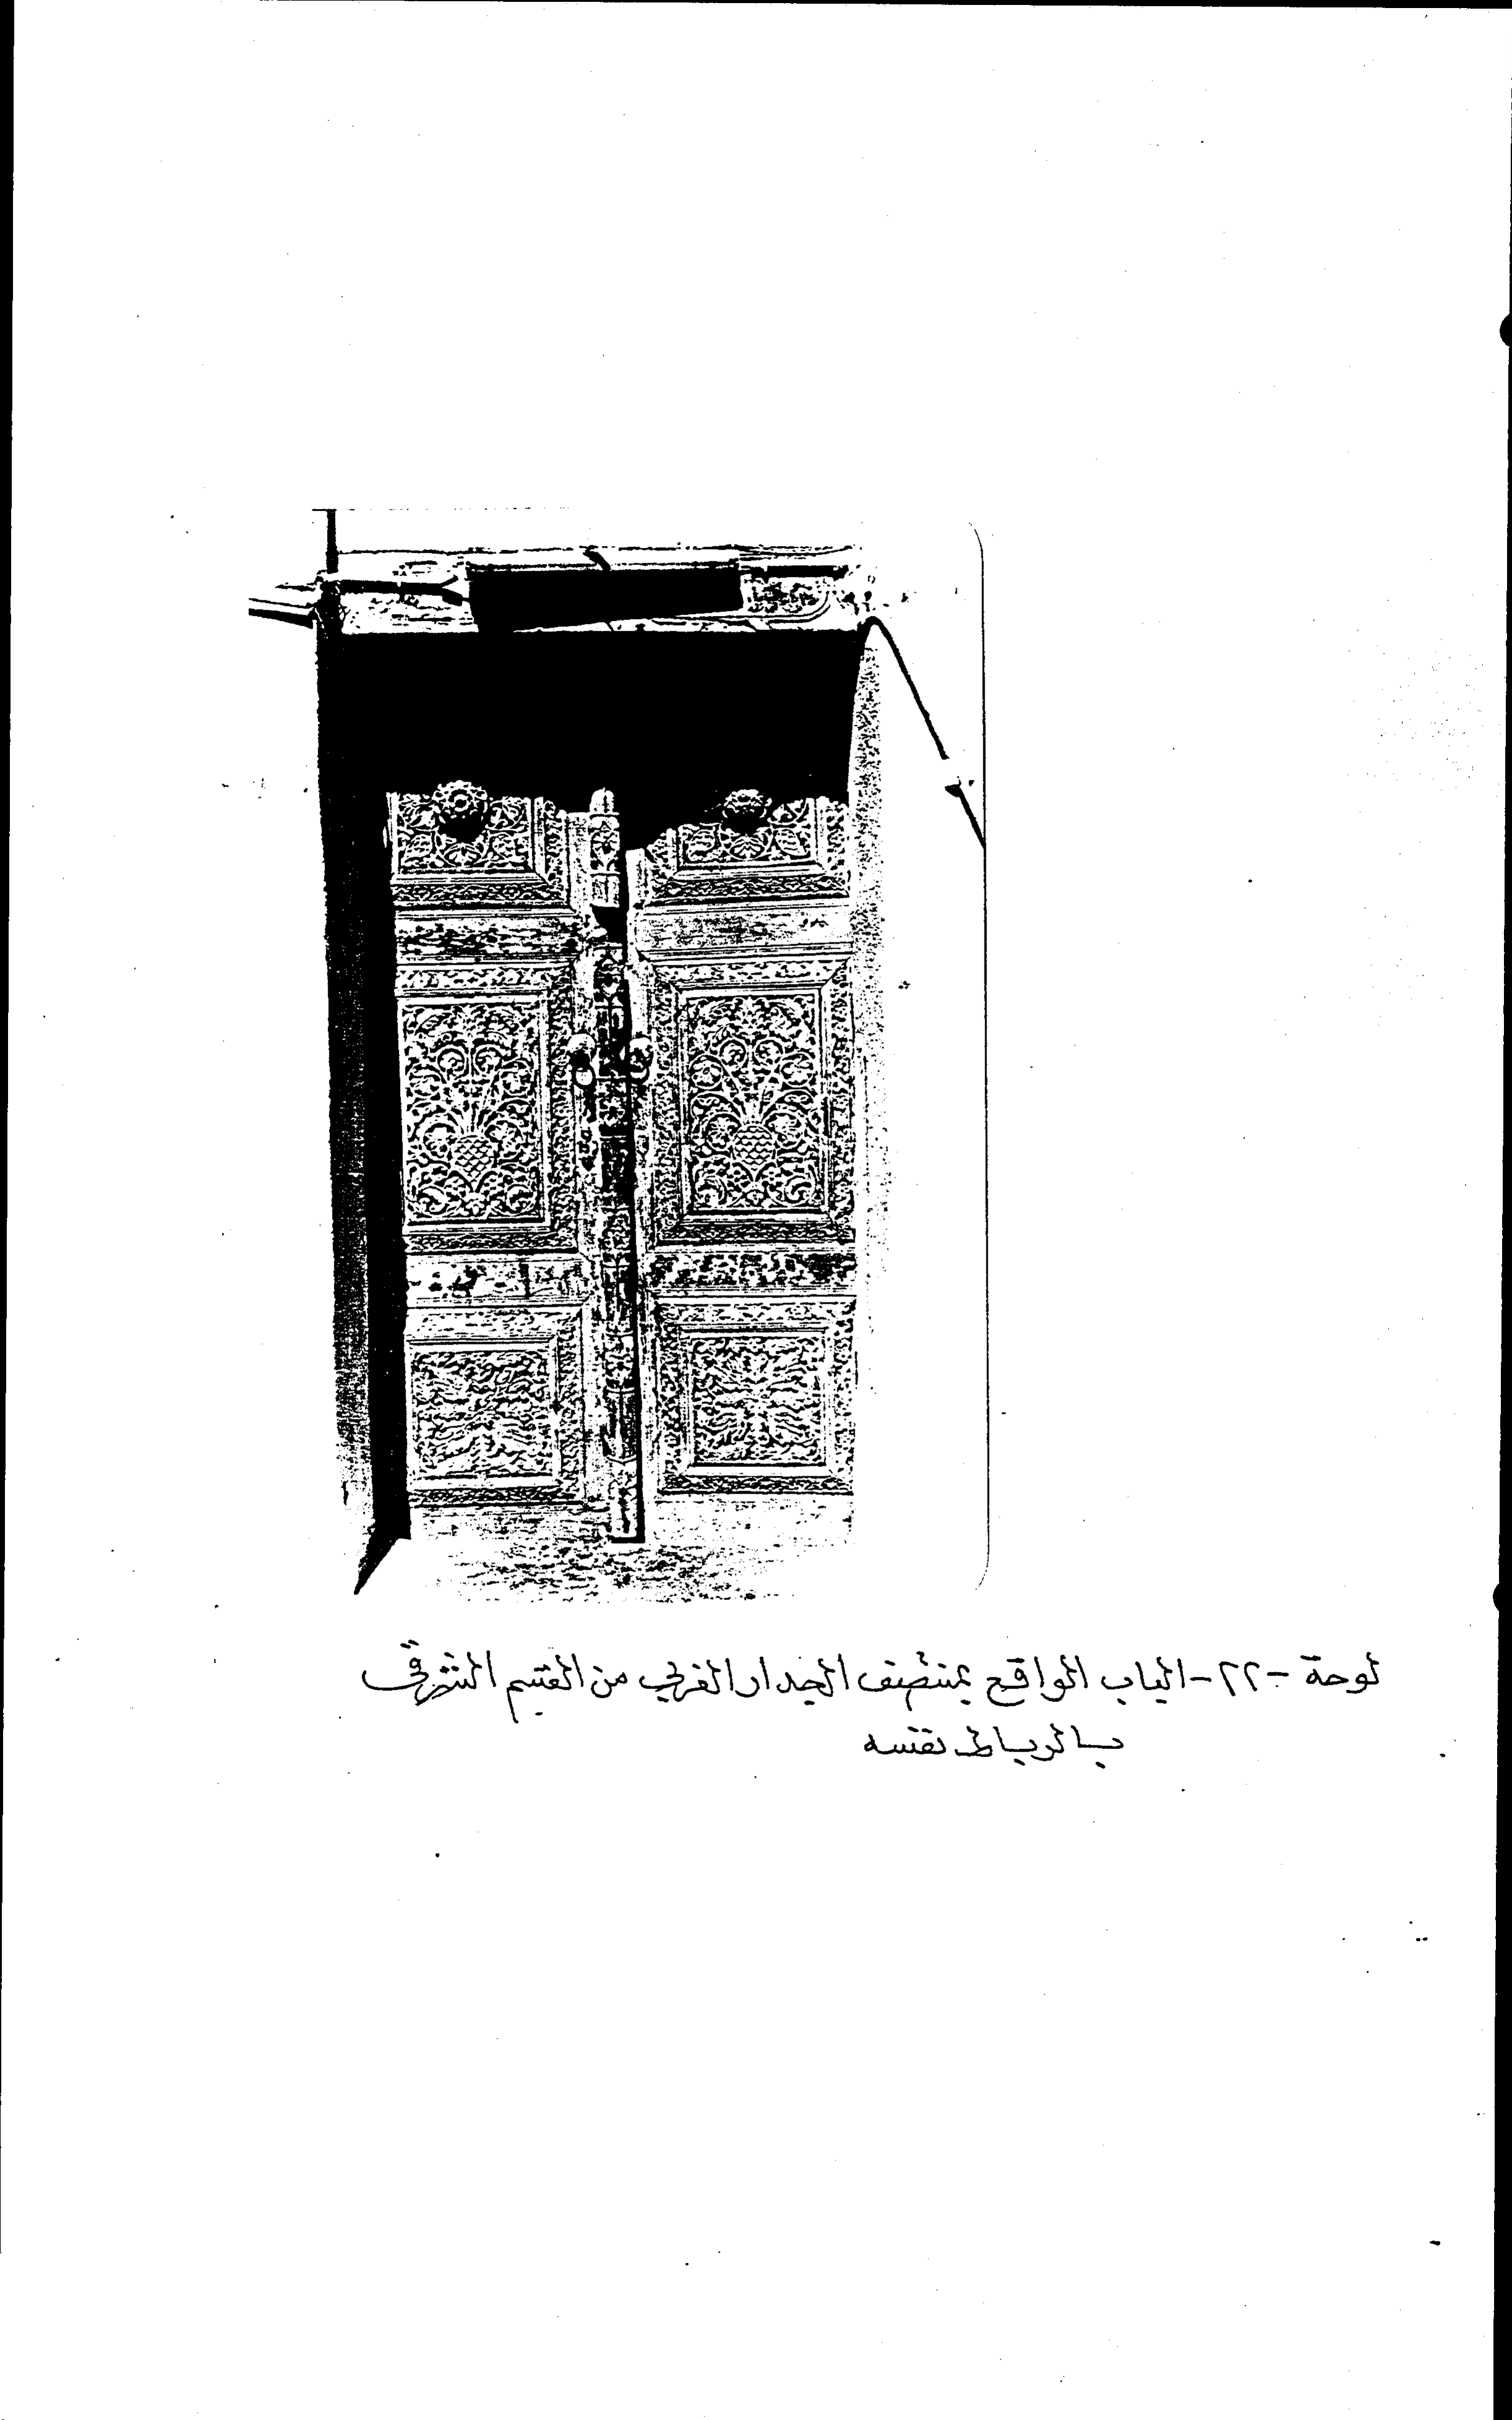 لوحة -٢٢- الباب الواقع بمنتصف الجدار الغربي من القسم الشرقي
بالرباط نفسه